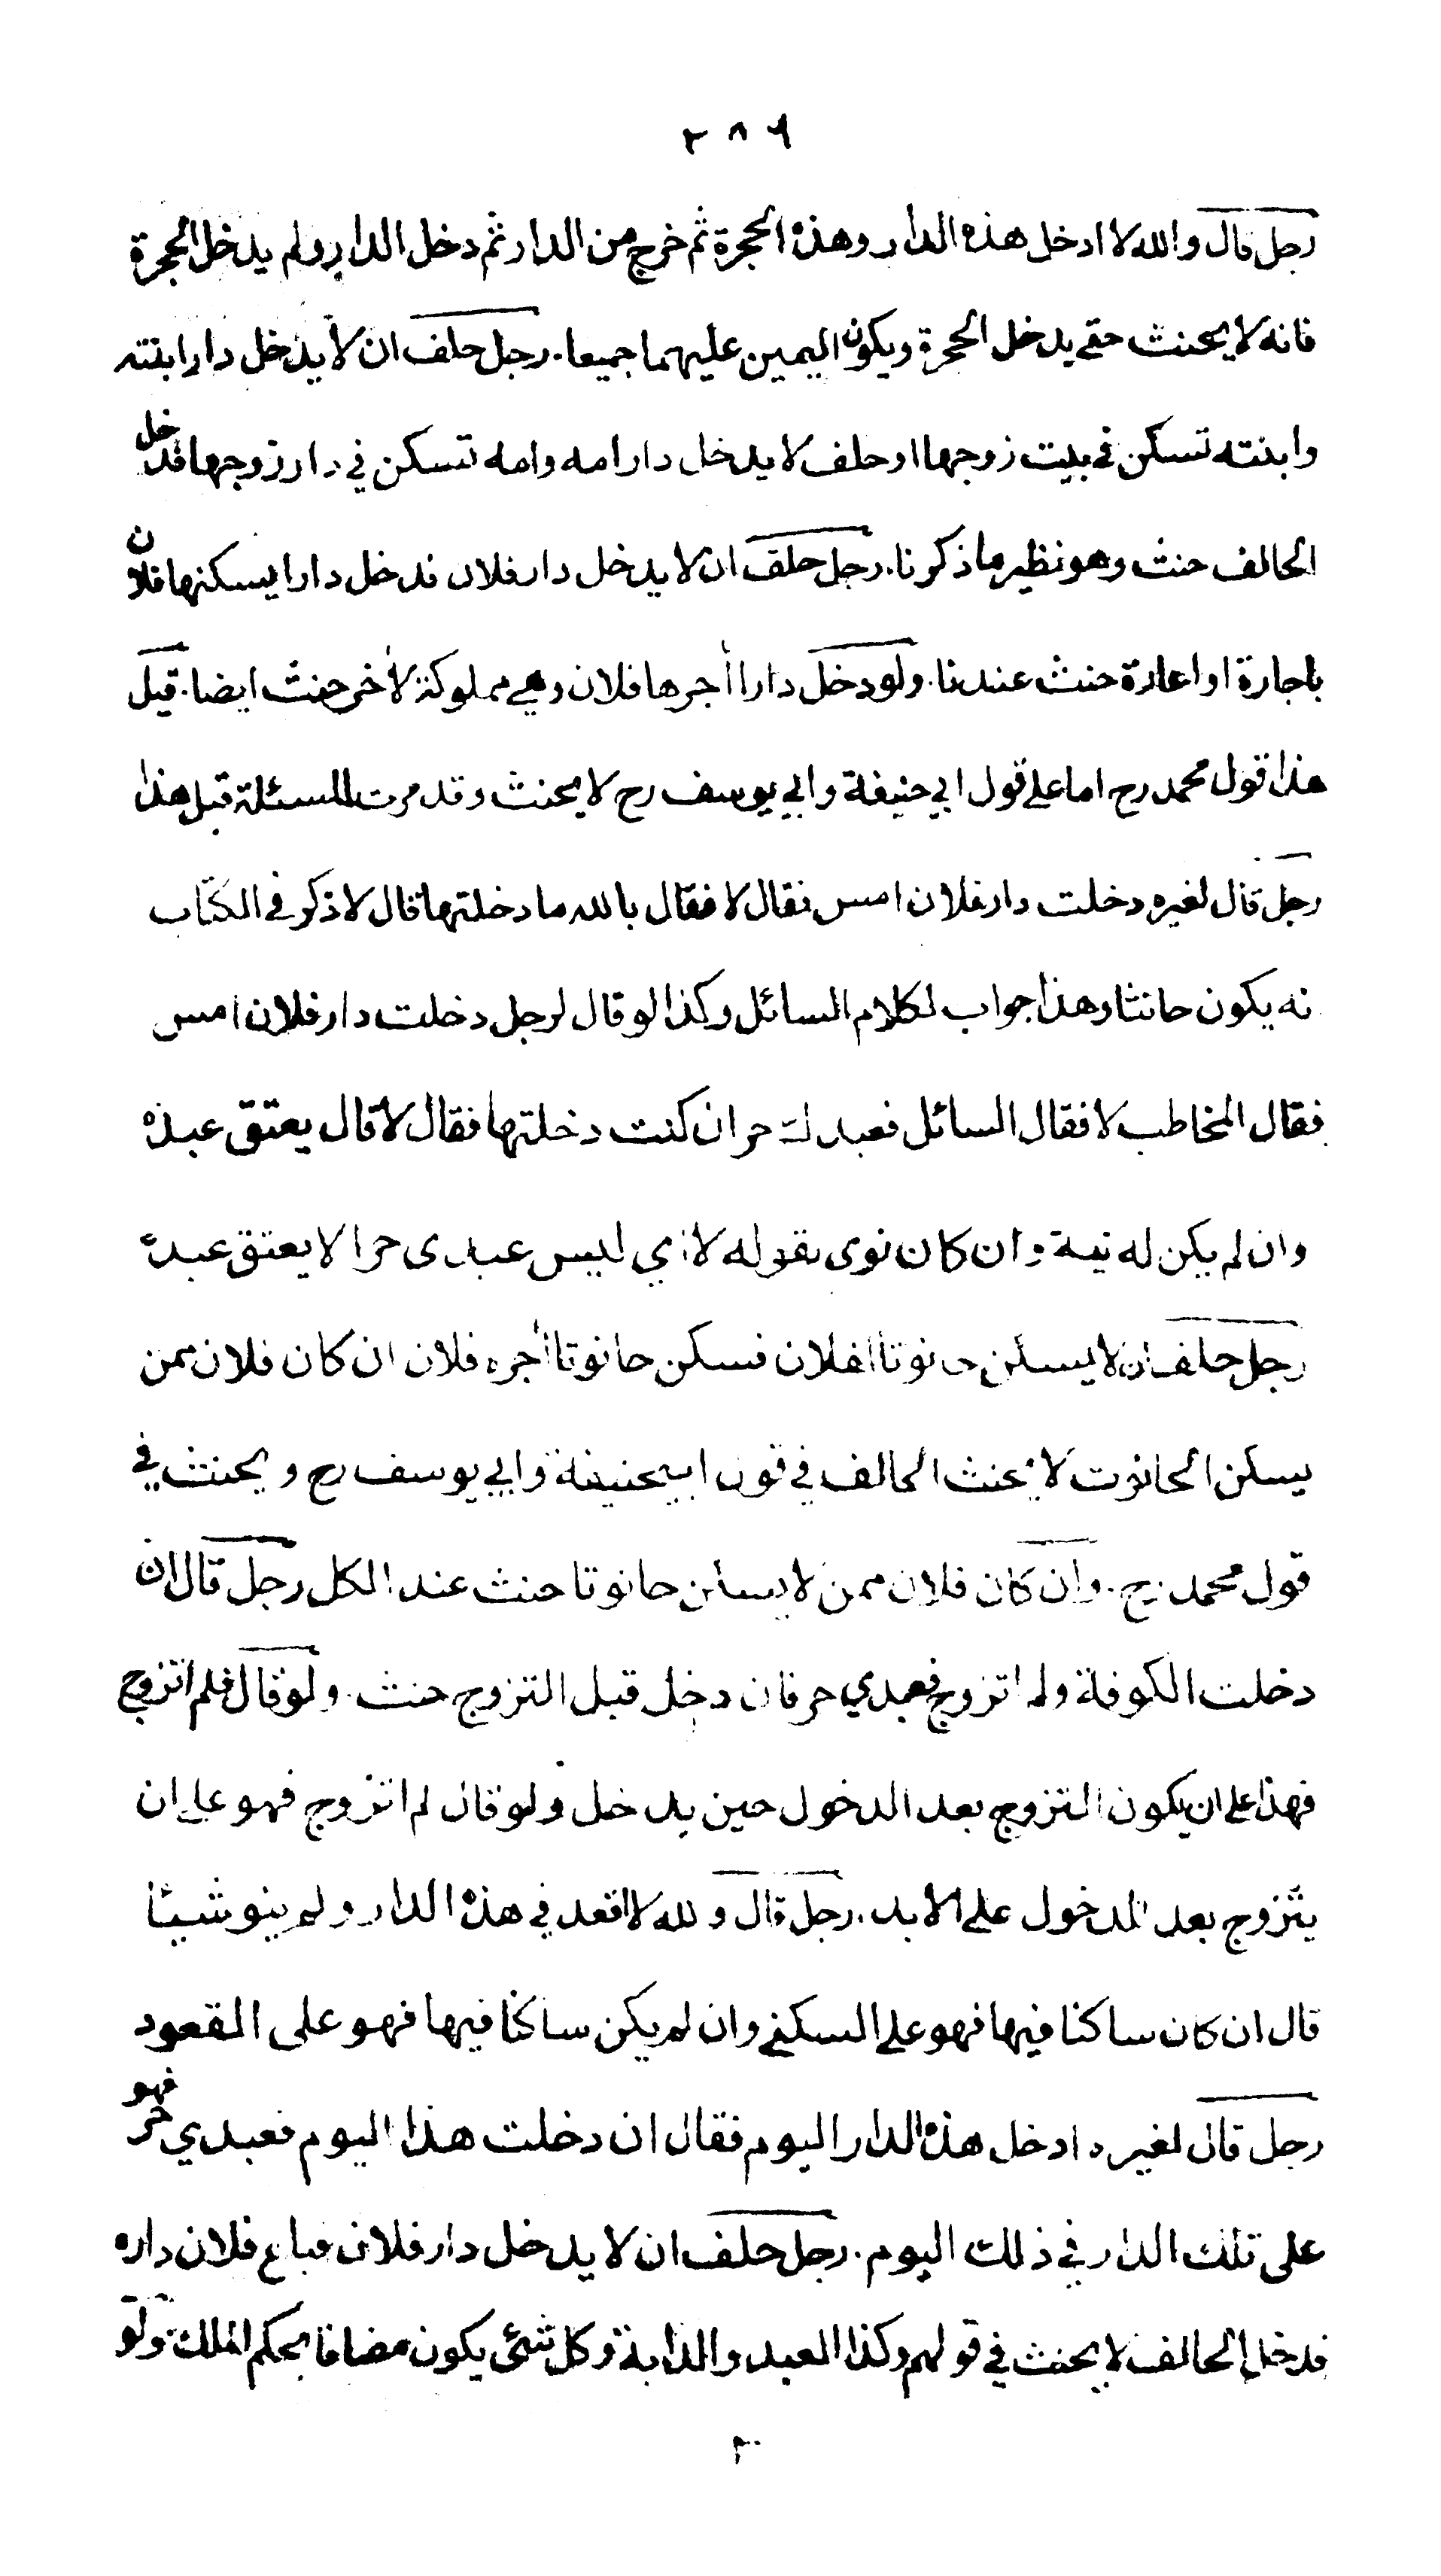 ٢٨٩
رجل قال والله لا ادخل هذه الدار وهذه الحجرة ثم خرج من الدار ثم دخل الدار ولم يدخل الحجرة
فانه لا يحنث حتے يدخل الحجرة ويكون اليمين عليهما جميعا. رجل حلف ان لا يدخل دار ابنته
وابنته تسكن في بيت زوجها او حلف لا يدخل دار امه وامه تسكن في دار زوجها فدخل
الحالف حنث وهو نظير ما ذكرنا. رجل حلف ان لا يدخل دار فلان فدخل دارا يسكنها فلان
باجارة او اعارة حنث عندنا. ولو دخل دارا أجرها فلان وهي مملوكة لأخر حنث ايضا. قيل
هذا قول محمد رح اما علے قول ابي حنيفة وابي يوسف رح لا يحنث وقد مرت المسئلة قبل هذا
رجل قال لغيره دخلت دار فلان امس فقال لا فقال بالله ما دخلتها قال لا ذكر في الكتاب
نه يكون حانثا وهذا جواب لكلام السائل وكذا لو قال لرجل دخلت دار فلان امس
فقال المخاطب لا فقال السائل فعبدك حر ان كنت دخلتها فقال لا قال يعتق عبده
وان لم يكن له نية وان كان نوى بقوله لا اي ليس عبدى حرا لا يعتق عبده
رجل حلف ان لا يسكن حانوتا لفلان فسكن حانوتا أجره فلان ان كان فلان ممن
يسكن الحانوت لا يحنث الحالف في قول ابيحنيفة وابي يوسف رح ويحنث في
قول محمد رح. وان كان فلان ممن لا يسكن حانوتا حنث عند الكل رجل قال ان
دخلت الكوفة ولم اتزوج فعبدي حر فان دخل قبل التزوج حنث. ولو قال فلم اتزوج
فهذا علے ان يكون التزوج بعد الدخول حين يدخل ولو قال لم اتزوج فهو علے ان
يتزوج بعد الدخول علے الابد. رجل قال و لله لا اقعد في هذه الدار ولم ينو شيئا
قال ان كان ساكنا فيها فهو علے السكنے وان لم يكن ساكنا فيها فهو على القعود
رجل قال لغيره ادخل هذه الدار اليوم فقال ان دخلت هذا اليوم فعبدي حر فهو
على تلك الدار في ذلك اليوم. رجل حلف ان لا يدخل دار فلان فباع فلان داره
فدخل الحالف لا يحنث في قولهم وكذا العبد والدابة وكل شئى يكون مضافا بحكم الملك. ولو